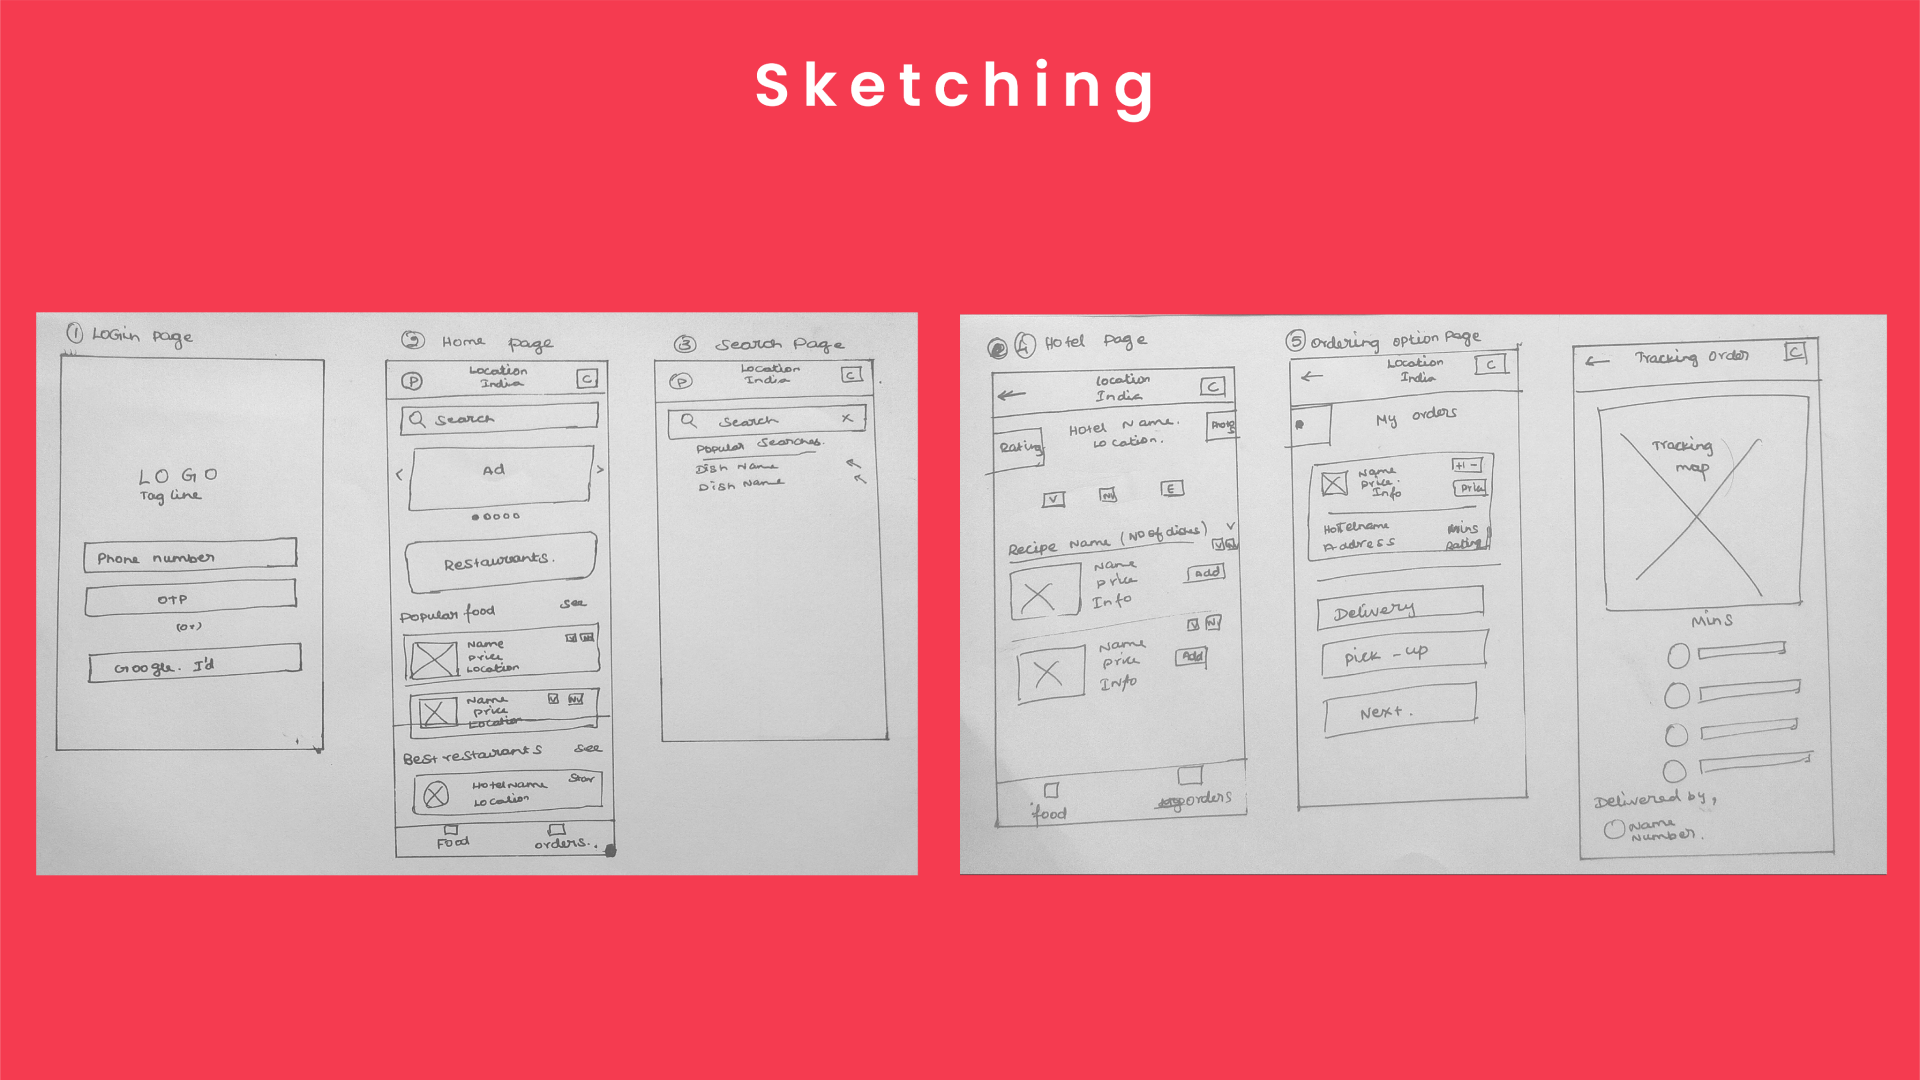 Sketching
① Login page
LOGO
Tag line
Phone number
OTP
(or)
Google. I'd
② Home page
P
Location
India
C
Search
< Ad >
Restaurants.
Popular food See
Name
Price
Location
V NV
Name
Price
Location
V NV
Best restaurants See
Hotel Name
Location
Star
Food
orders..
③ Search Page
P
Location
India
C
Search X
Popular Searches.
Dish Name
Dish Name
④ Hotel Page
←
Location
India
C
Rating
Hotel Name.
Location.
V
E
Recipe Name (NO of dishes) V
Name
Price
Info
Add
V N
Name
price
Info
Add
food
orders
⑤ ordering option Page
←
Location
India
C
My orders
Name
Price.
Info
+1 -
Price
Hotelname
Address
Mins
Rating
Delivery
Pick-up
Next.
← Tracking order C
Tracking
map
Mins
Delivered by,
Name
Number.